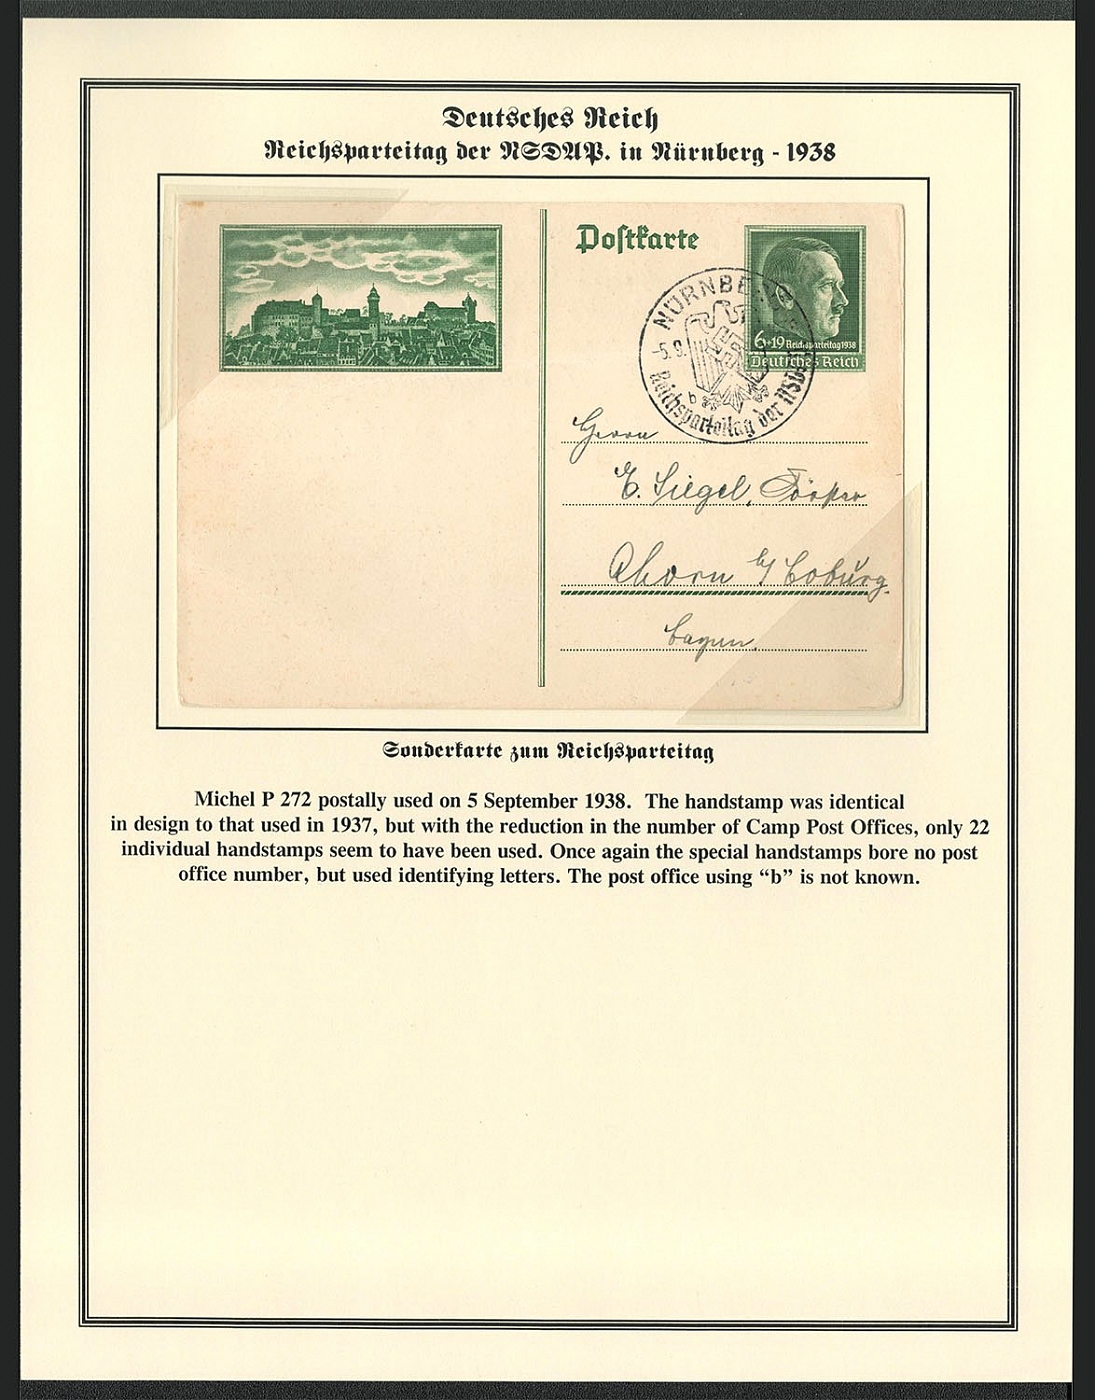 Deutsches Reich
Reichsparteitag der NSDAP. in Nürnberg - 1938
Postkarte
6+19 Reichsparteitag 1938
Deutsches Reich
NÜRNBE
-5.9.
b
Reichsparteitag der NSDA
Herrn
E. Siegel,
Ahorn b/ Coburg.
Bayern.
Sonderkarte zum Reichsparteitag
Michel P 272 postally used on 5 September 1938. The handstamp was identical
in design to that used in 1937, but with the reduction in the number of Camp Post Offices, only 22
individual handstamps seem to have been used. Once again the special handstamps bore no post
office number, but used identifying letters. The post office using “b” is not known.